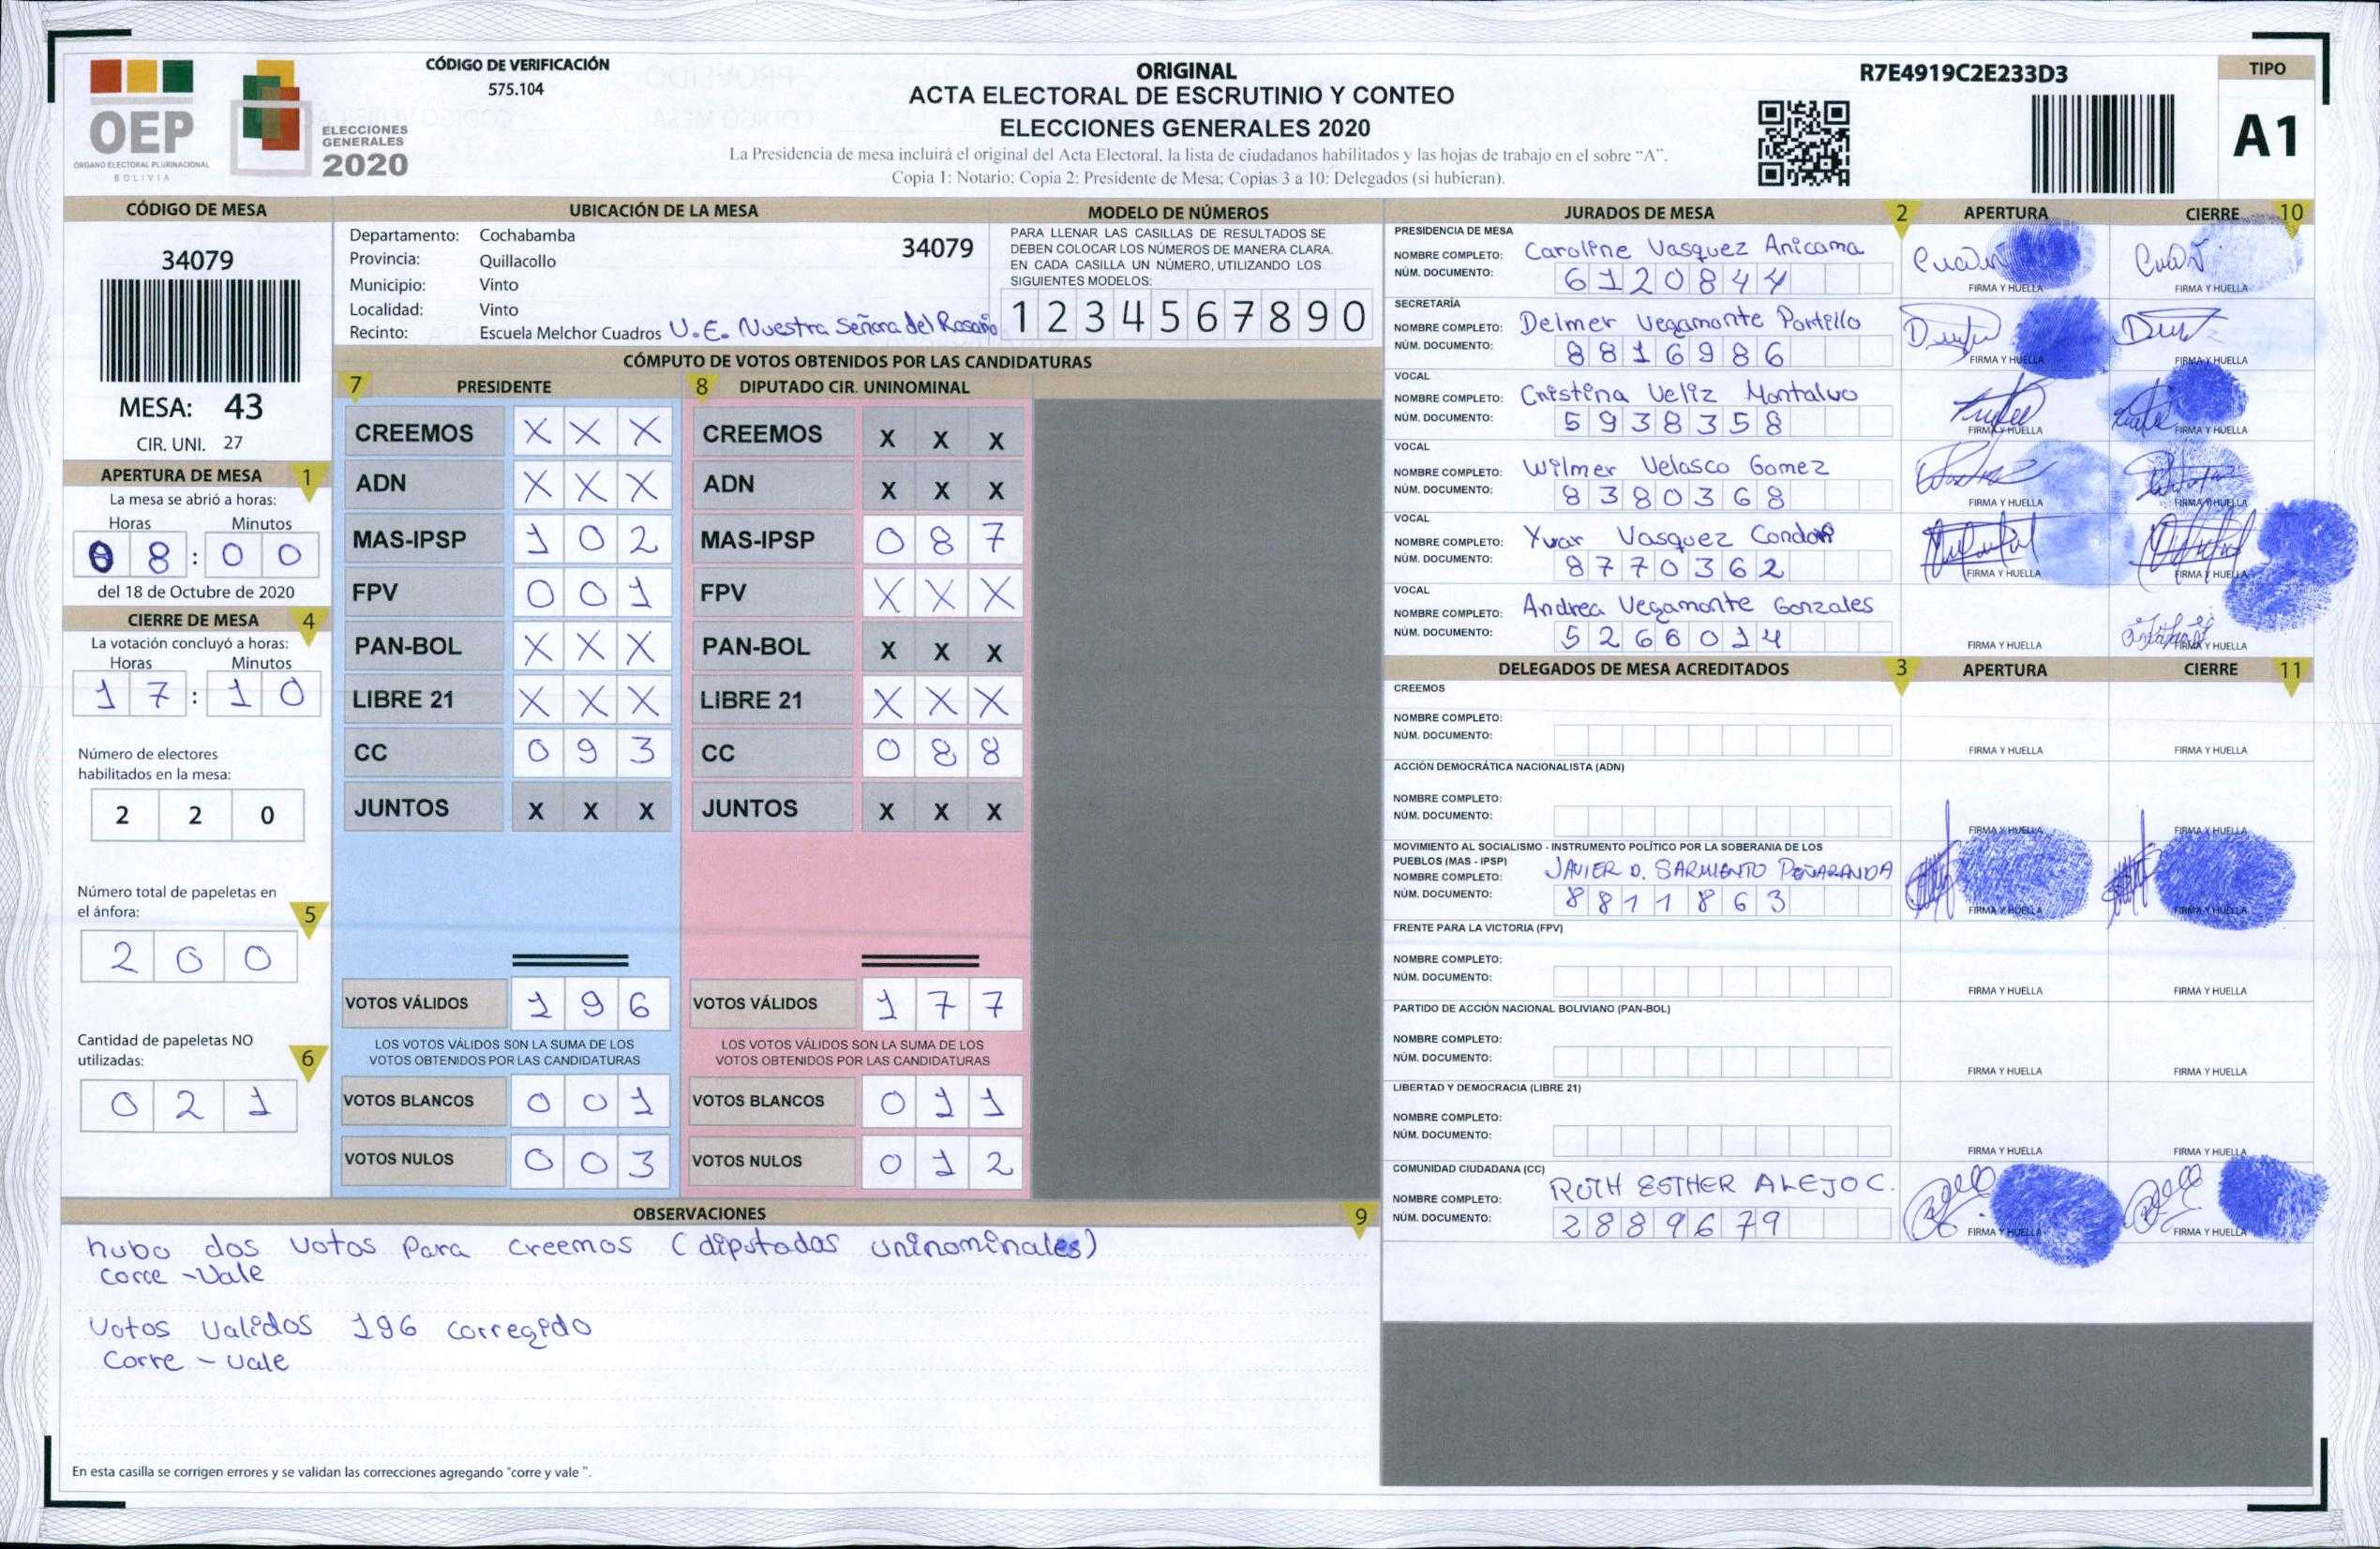 OEP
ÓRGANO ELECTORAL PLURINACIONAL
BOLIVIA
ELECCIONES
GENERALES
2020
CÓDIGO DE VERIFICACIÓN
575.104
ORIGINAL
ACTA ELECTORAL DE ESCRUTINIO Y CONTEO
ELECCIONES GENERALES 2020
La Presidencia de mesa incluirá el original del Acta Electoral, la lista de ciudadanos habilitados y las hojas de trabajo en el sobre "A".
Copia 1: Notario; Copia 2: Presidente de Mesa; Copias 3 a 10: Delegados (si hubieran).
R7E4919C2E233D3
TIPO
A1
CÓDIGO DE MESA
34079
MESA: 43
CIR. UNI. 27
APERTURA DE MESA 1
La mesa se abrió a horas:
Horas Minutos
0 8 : 0 0
del 18 de Octubre de 2020
CIERRE DE MESA 4
La votación concluyó a horas:
Horas Minutos
1 7 : 1 0
Número de electores
habilitados en la mesa:
2 2 0
Número total de papeletas en
el ánfora: 5
2 0 0
Cantidad de papeletas NO
utilizadas: 6
0 2 1
UBICACIÓN DE LA MESA
Departamento: Cochabamba 34079
Provincia: Quillacollo
Municipio: Vinto
Localidad: Vinto
Recinto: Escuela Melchor Cuadros U.E. Nuestra Señora del Rosario
MODELO DE NÚMEROS
PARA LLENAR LAS CASILLAS DE RESULTADOS SE
DEBEN COLOCAR LOS NÚMEROS DE MANERA CLARA.
EN CADA CASILLA UN NÚMERO, UTILIZANDO LOS
SIGUIENTES MODELOS:
1 2 3 4 5 6 7 8 9 0
CÓMPUTO DE VOTOS OBTENIDOS POR LAS CANDIDATURAS
7 PRESIDENTE 8 DIPUTADO CIR. UNINOMINAL
CREEMOS X X X CREEMOS X X X
ADN X X X ADN X X X
MAS-IPSP 1 0 2 MAS-IPSP 0 8 7
FPV 0 0 1 FPV X X X
PAN-BOL X X X PAN-BOL X X X
LIBRE 21 X X X LIBRE 21 X X X
CC 0 9 3 CC 0 8 8
JUNTOS X X X JUNTOS X X X
VOTOS VÁLIDOS 1 9 6 VOTOS VÁLIDOS 1 7 7
LOS VOTOS VÁLIDOS SON LA SUMA DE LOS
VOTOS OBTENIDOS POR LAS CANDIDATURAS
LOS VOTOS VÁLIDOS SON LA SUMA DE LOS
VOTOS OBTENIDOS POR LAS CANDIDATURAS
VOTOS BLANCOS 0 0 1 VOTOS BLANCOS 0 1 1
VOTOS NULOS 0 0 3 VOTOS NULOS 0 1 2
OBSERVACIONES 9
hubo dos votos para creemos (diputados uninominales)
corre - vale
Votos validos 196 corregido
Corre - vale
En esta casilla se corrigen errores y se validan las correcciones agregando "corre y vale ".
JURADOS DE MESA 2 APERTURA CIERRE 10
PRESIDENCIA DE MESA
NOMBRE COMPLETO: Caroline Vasquez Anicama
NÚM. DOCUMENTO: 6120844
FIRMA Y HUELLA FIRMA Y HUELLA
SECRETARÍA
NOMBRE COMPLETO: Delmer Vegamonte Portillo
NÚM. DOCUMENTO: 8816986
FIRMA Y HUELLA FIRMA Y HUELLA
VOCAL
NOMBRE COMPLETO: Cristina Veliz Montalvo
NÚM. DOCUMENTO: 5938358
FIRMA Y HUELLA FIRMA Y HUELLA
VOCAL
NOMBRE COMPLETO: Wilmer Velasco Gomez
NÚM. DOCUMENTO: 8380368
FIRMA Y HUELLA FIRMA Y HUELLA
VOCAL
NOMBRE COMPLETO: Yvar Vasquez Condori
NÚM. DOCUMENTO: 8770362
FIRMA Y HUELLA FIRMA Y HUELLA
VOCAL
NOMBRE COMPLETO: Andrea Vegamonte Gonzales
NÚM. DOCUMENTO: 5266014
FIRMA Y HUELLA FIRMA Y HUELLA
DELEGADOS DE MESA ACREDITADOS 3 APERTURA CIERRE 11
CREEMOS
NOMBRE COMPLETO:
NÚM. DOCUMENTO:
FIRMA Y HUELLA FIRMA Y HUELLA
ACCIÓN DEMOCRÁTICA NACIONALISTA (ADN)
NOMBRE COMPLETO:
NÚM. DOCUMENTO:
FIRMA Y HUELLA FIRMA Y HUELLA
MOVIMIENTO AL SOCIALISMO - INSTRUMENTO POLÍTICO POR LA SOBERANIA DE LOS
PUEBLOS (MAS - IPSP)
NOMBRE COMPLETO: JAVIER D. SARMIENTO PEÑARANDA
NÚM. DOCUMENTO: 8811863
FIRMA Y HUELLA FIRMA Y HUELLA
FRENTE PARA LA VICTORIA (FPV)
NOMBRE COMPLETO:
NÚM. DOCUMENTO:
FIRMA Y HUELLA FIRMA Y HUELLA
PARTIDO DE ACCIÓN NACIONAL BOLIVIANO (PAN-BOL)
NOMBRE COMPLETO:
NÚM. DOCUMENTO:
FIRMA Y HUELLA FIRMA Y HUELLA
LIBERTAD Y DEMOCRACIA (LIBRE 21)
NOMBRE COMPLETO:
NÚM. DOCUMENTO:
FIRMA Y HUELLA FIRMA Y HUELLA
COMUNIDAD CIUDADANA (CC)
NOMBRE COMPLETO: RUTH ESTHER ALEJO C.
NÚM. DOCUMENTO: 2889679
FIRMA Y HUELLA FIRMA Y HUELLA